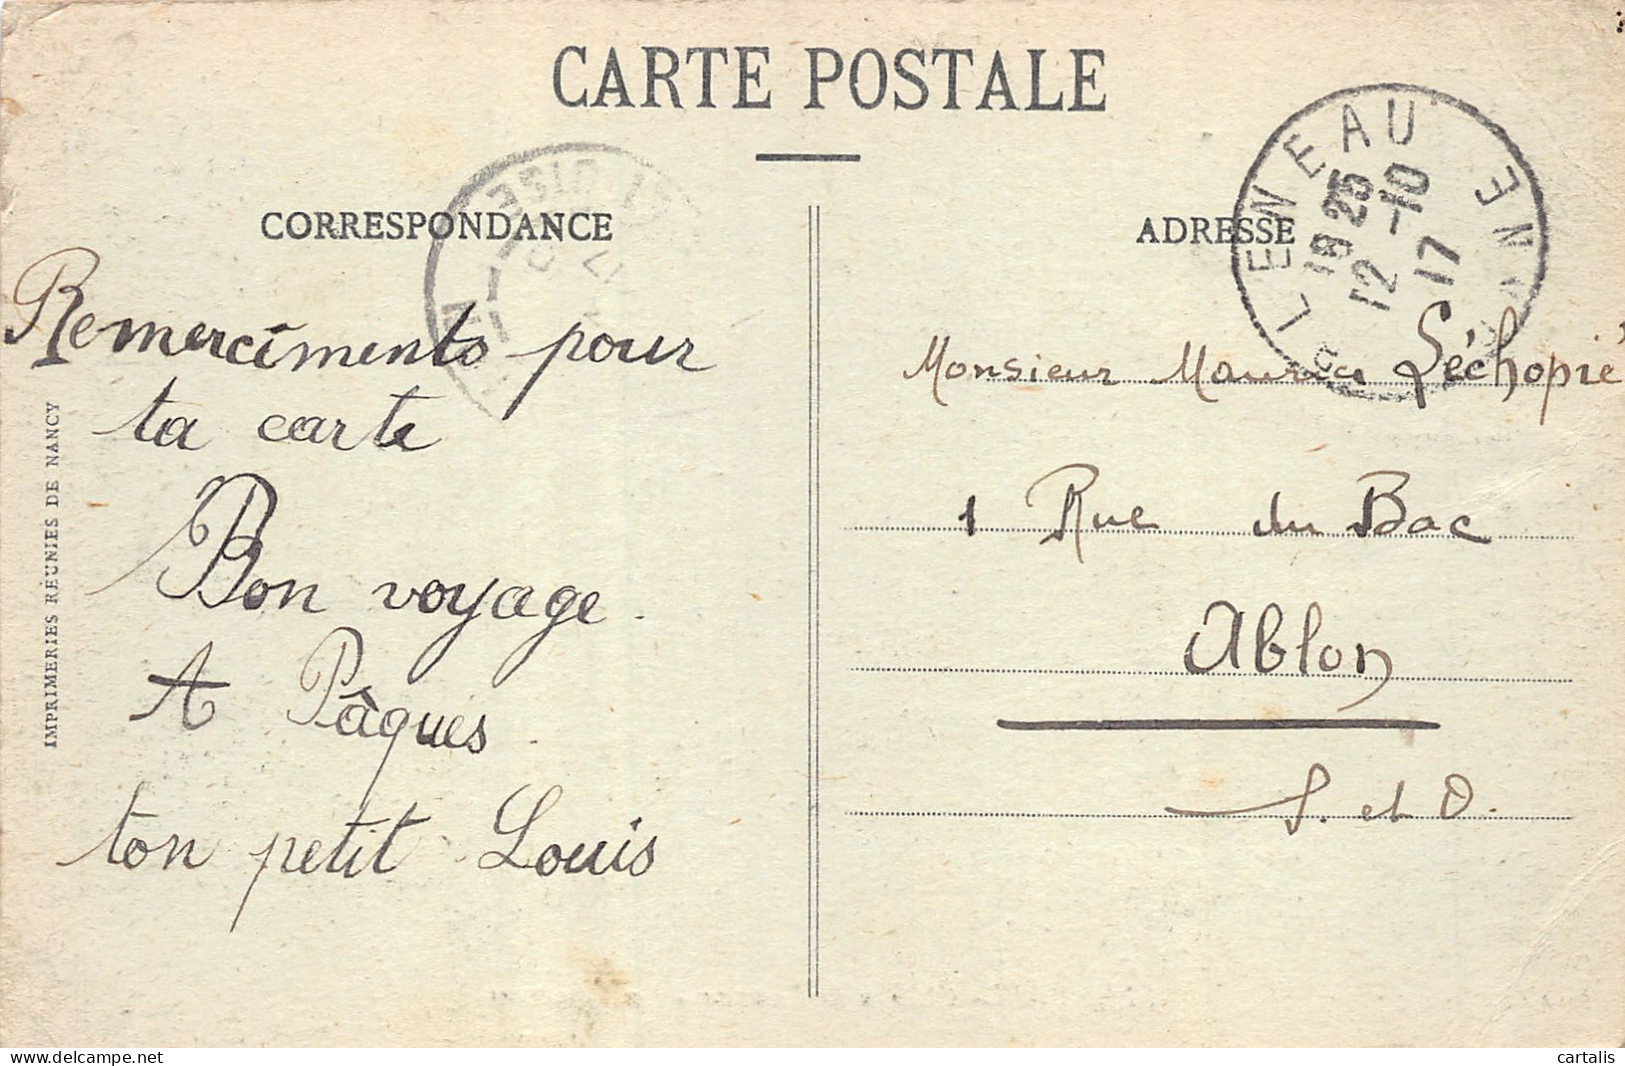 CARTE POSTALE
CORRESPONDANCE
ADRESSE
LENEAU
18 25
12 -10
17
Remerciments pour
ta carte
Bon voyage.
A Pâques.
ton petit Louis
Monsieur Maurice Séchopié
1 Rue du Bac
Ablon
S. et O.
IMPRIMERIES RÉUNIES DE NANCY
delcampe.net
cartalis